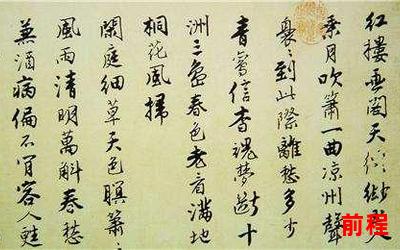 红楼垂阁天
乘月吹箫一曲凉州声
袅〻到此际离愁多少
青鸾信杳魂梦断十
洲三岛春色老音满地
桐花风扫
闲庭细草天色暝
风雨清明万斛春愁
兼酒病偏不肯容人
前程